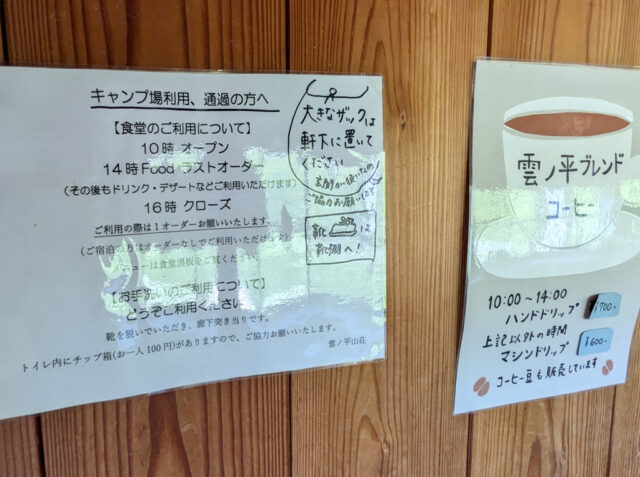 キャンプ場利用、通過の方へ
【食堂のご利用について】
10時 オープン
14時 Food ラストオーダー
(その後もドリンク・デザートなどご利用いただけます)
16時 クローズ
ご利用の際は1オーダーお願いいたします。
(ご宿泊の方はオーダーなしでご利用いただけます)
メニューは食堂黒板をご覧ください
【お手洗いのご利用について】
どうぞご利用ください
靴を脱いでいただき、廊下突き当りです。
トイレ内にチップ箱(お一人100円)がありますので、ご協力お願いいたします。
雲ノ平山荘
大きなザックは
軒下に置いて
ください
ご協力お願いします
靴は
靴棚へ!
雲ノ平ブレンド
コーヒー
10:00~14:00
ハンドドリップ ¥700-
上記以外の時間
マシンドリップ ¥600-
コーヒー豆も販売しています